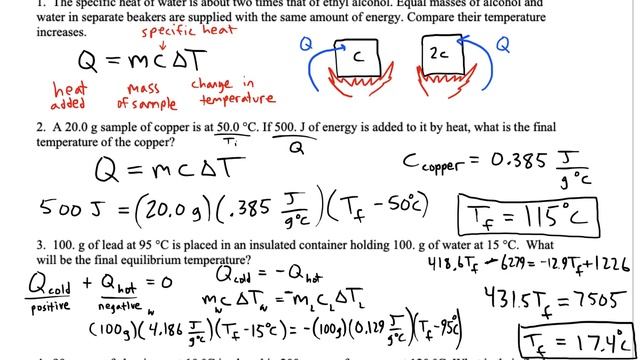 1. The specific heat of water is about two times that of ethyl alcohol. Equal masses of alcohol and
water in separate beakers are supplied with the same amount of energy. Compare their temperature
increases.
specific heat
Q = mcΔT
heat added
mass of sample
change in temperature
Q
c
2c
Q
2. A 20.0 g sample of copper is at 50.0 °C. If 500. J of energy is added to it by heat, what is the final
temperature of the copper?
Ti
Q
Q = mcΔT
C copper = 0.385 J/g°C
500 J = (20.0g)(.385 J/g°C)(Tf - 50°C)
Tf = 115°C
3. 100. g of lead at 95 °C is placed in an insulated container holding 100. g of water at 15 °C. What
will be the final equilibrium temperature?
Qcold + Qhot = 0
positive
negative
Qcold = -Qhot
mwcwΔTw = -mLcLΔTL
(100g)(4.186 J/g°C)(Tf - 15°C) = -(100g)(0.129 J/g°C)(Tf - 95°C)
418.6Tf - 6279 = -12.9Tf + 1226
431.5Tf = 7505
Tf = 17.4°C